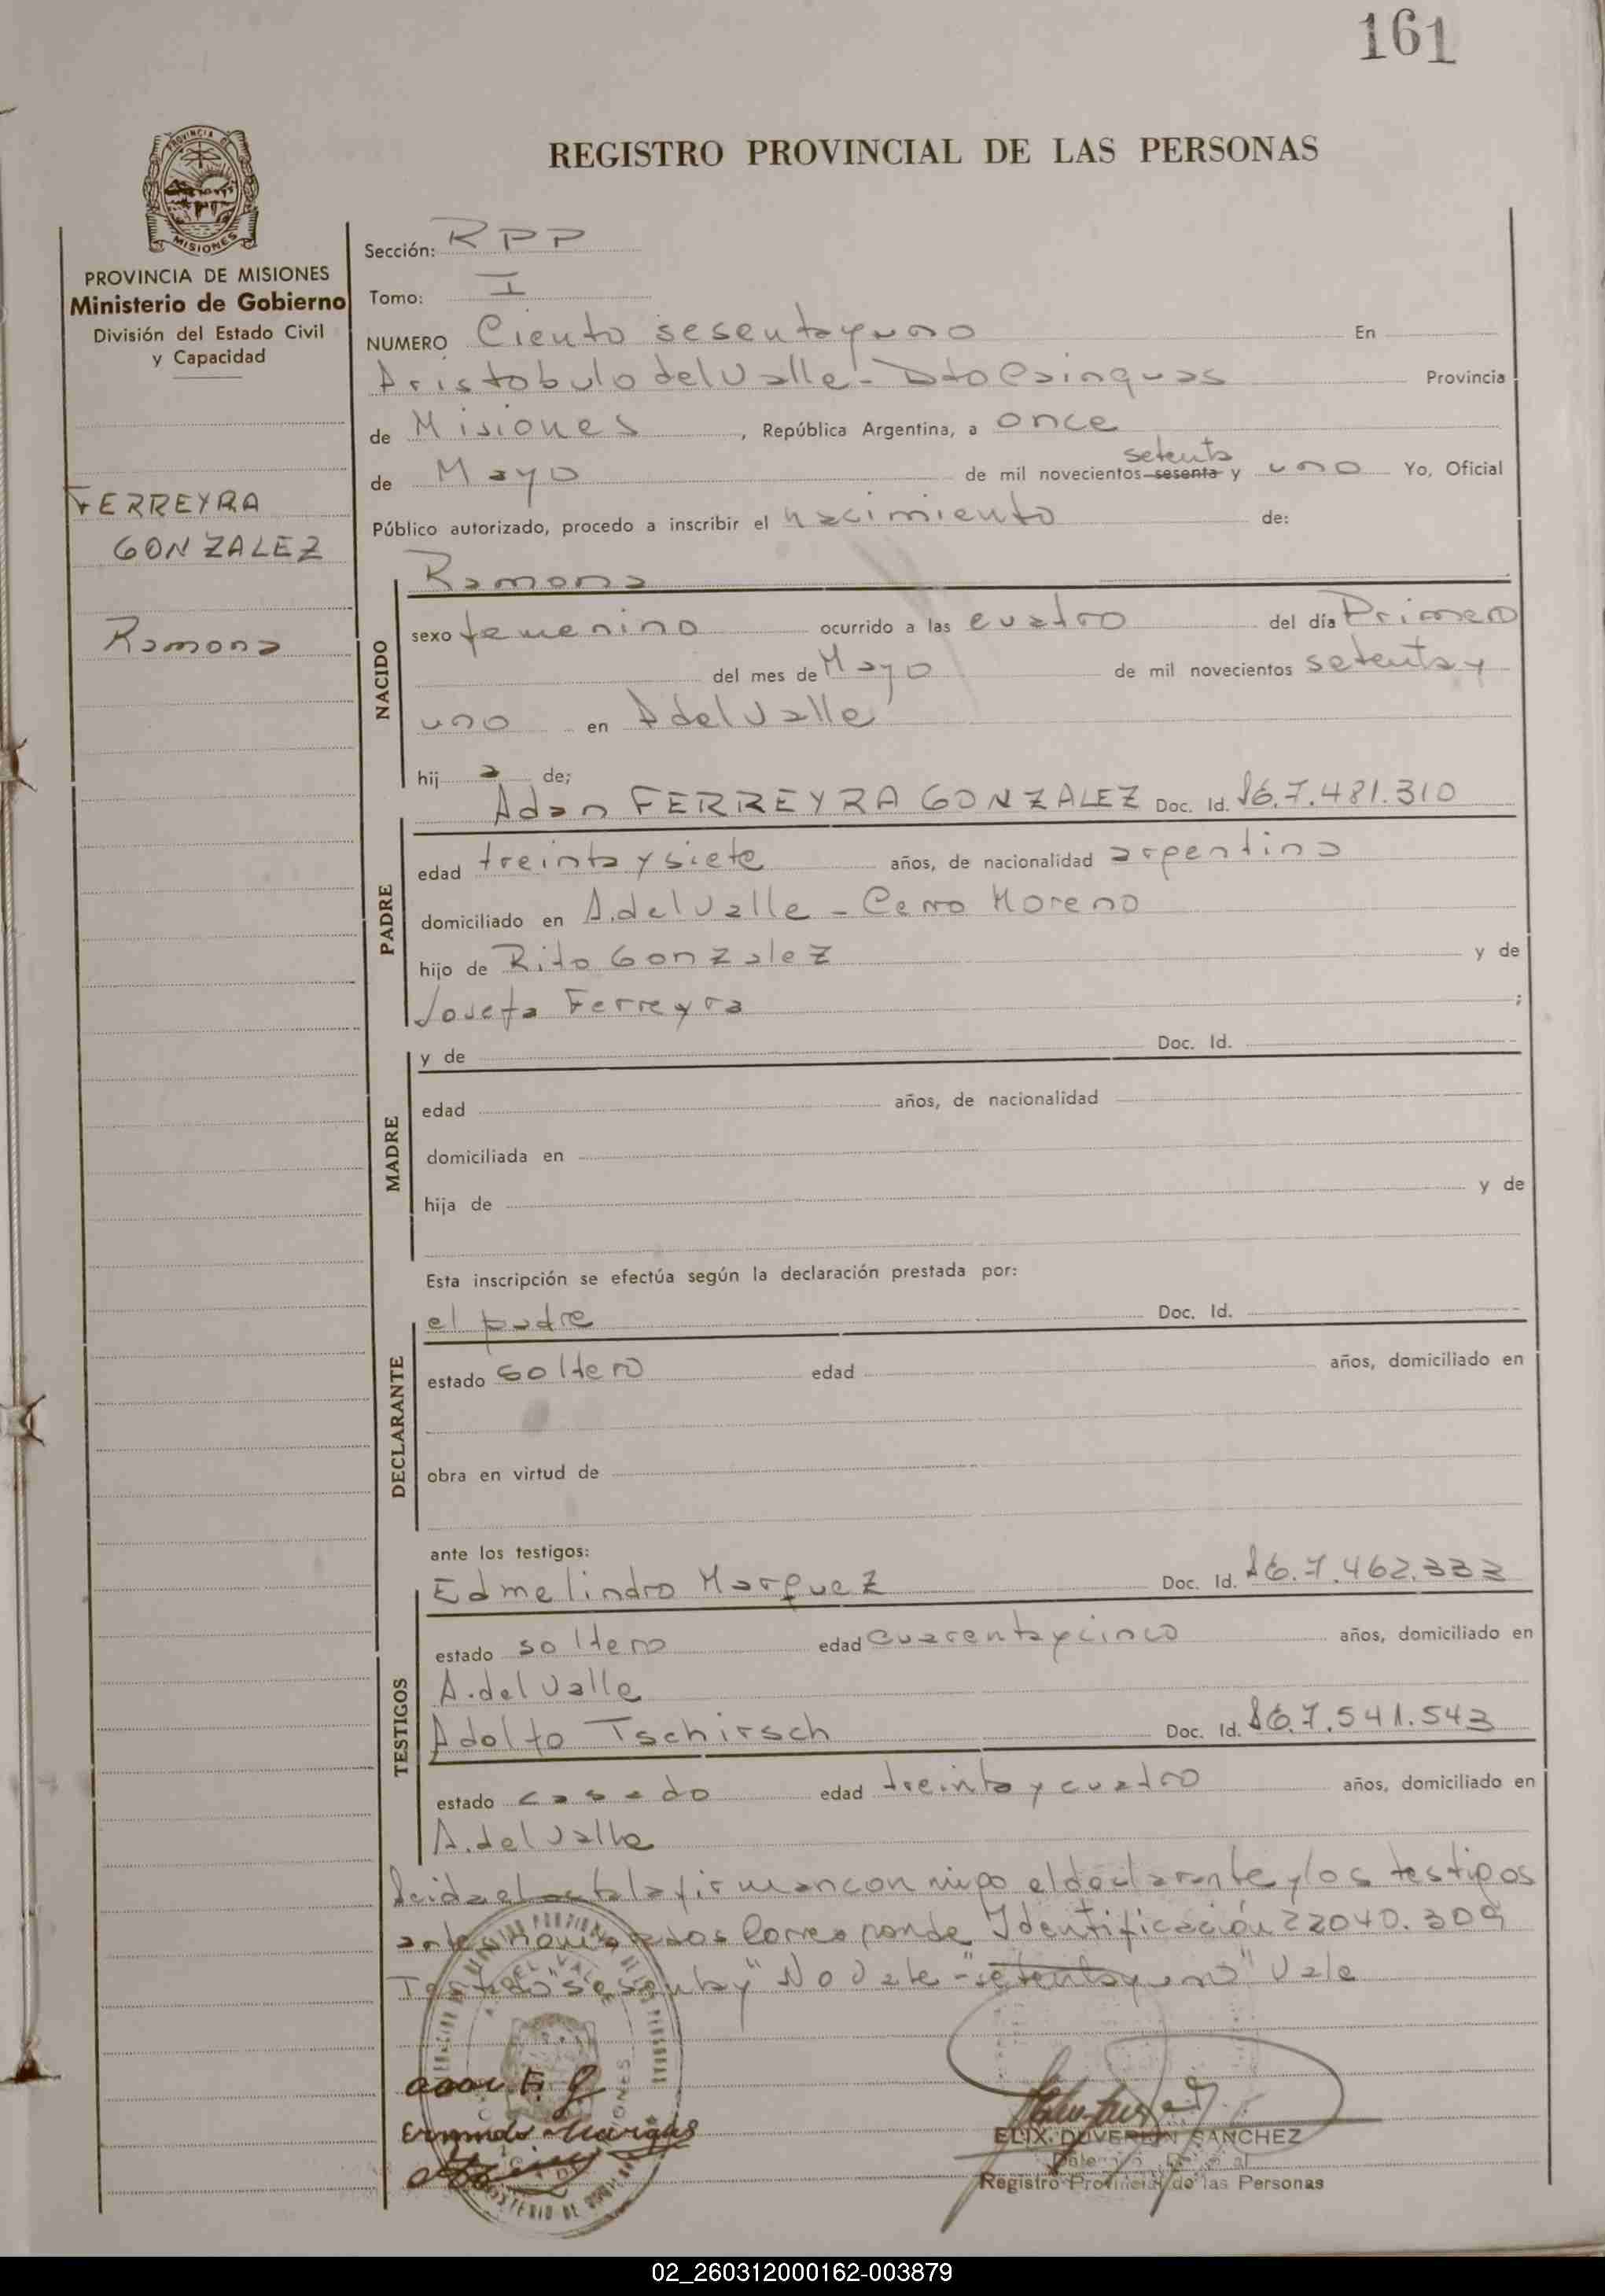 161
REGISTRO PROVINCIAL DE LAS PERSONAS
PROVINCIA
MISIONES
PROVINCIA DE MISIONES
Ministerio de Gobierno
División del Estado Civil
y Capacidad
FERREYRA
GONZALEZ
Ramona
Sección: RPP
Tomo: I
NUMERO Ciento sesentayuno En
Aristobulo del Valle - Dto Cainguas Provincia
de Misiones, República Argentina, a once
setenta
de Mayo de mil novecientos sesenta y uno Yo, Oficial
Público autorizado, procedo a inscribir el nacimiento de:
Ramona
NACIDO
sexo femenino ocurrido a las cuatro del día Primero
del mes de Mayo de mil novecientos setenta y
uno en A del Valle
hij a de;
Adan FERREYRA GONZALEZ Doc. Id. 7.481.310
PADRE
edad treinta y siete años, de nacionalidad argentina
domiciliado en A. del Valle - Cerro Moreno
hijo de Rito Gonzalez y de
Josefa Ferreyra ;
MADRE
y de Doc. Id.
edad años, de nacionalidad
domiciliada en
hija de y de
Esta inscripción se efectúa según la declaración prestada por:
DECLARANTE
el padre Doc. Id.
estado soltero edad años, domiciliado en
obra en virtud de
ante los testigos:
TESTIGOS
Edmelindro Marquez Doc. Id. 7.462.333
estado soltero edad cuarentaycinco años, domiciliado en
A. del Valle
Adolfo Tschirsch Doc. Id. 7.541.543
estado casado edad treinta y cuatro años, domiciliado en
A. del Valle
Leida el acta la firman conmigo el declarante y los testigos
antes mencionados Corresponde Identificación 22040.309
Testado "sesenta y" No Vale - "setentayuno" Vale
ELIX DUVERLIN SANCHEZ
Registro Provincial de las Personas
02_260312000162-003879